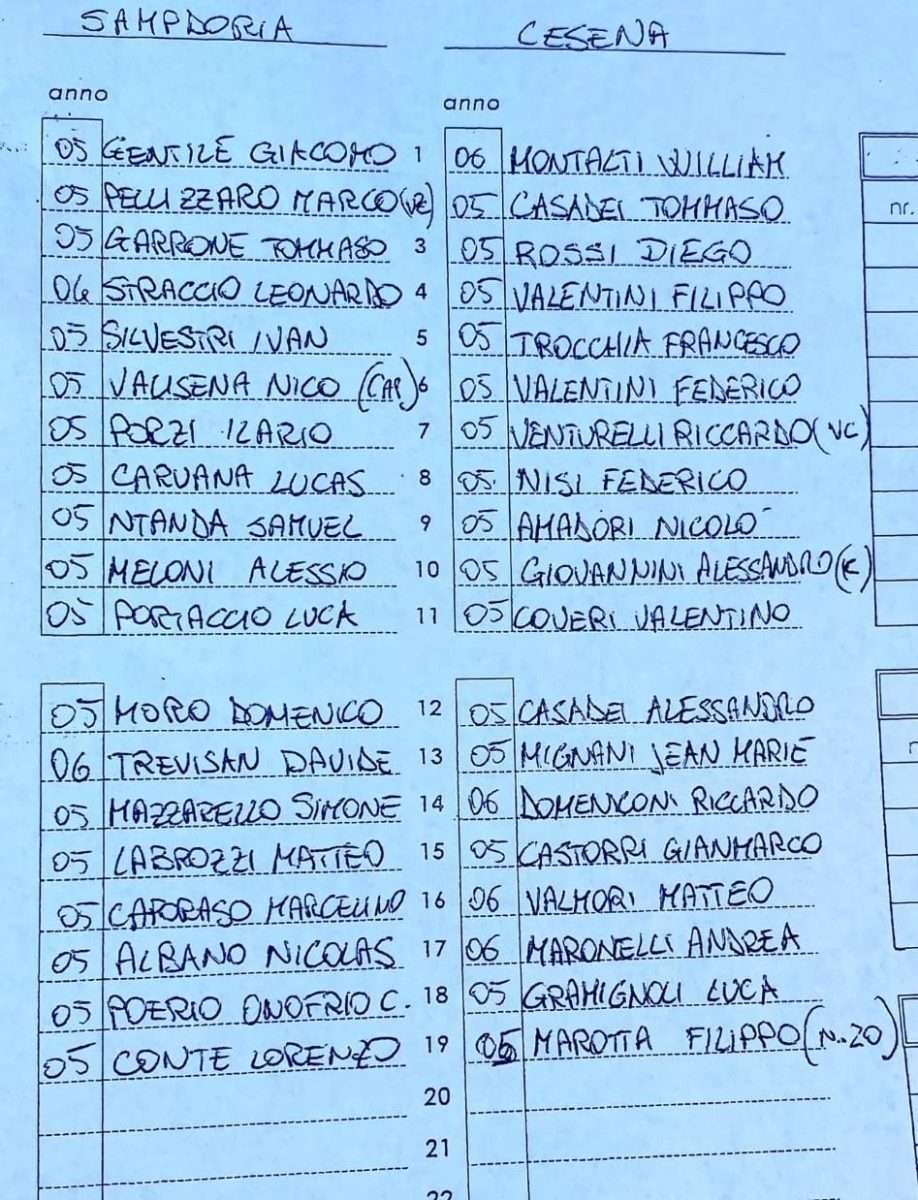 SAMPDORIA CESENA
anno anno
05 GENTILE GIACOMO 1 06 MONTALTI WILLIAM
05 PELLIZZARO MARCO (VZ) 05 CASADEI TOMMASO
05 GARRONE TOMMASO 3 05 ROSSI DIEGO
06 STRACCIO LEONARDO 4 05 VALENTINI FILIPPO
05 SILVESTRI IVAN 5 05 TROCCHIA FRANCESCO
05 VALISENA NICO (CAP) 6 05 VALENTINI FEDERICO
05 PORZI ILARIO 7 05 VENTURELLI RICCARDO (VC)
05 CARUANA LUCAS 8 05 NISI FEDERICO
05 NTANDA SAMUEL 9 05 AMADORI NICOLO'
05 MELONI ALESSIO 10 05 GIOVANNINI ALESSANDRO (K)
05 PORTACCIO LUCA 11 05 COVERI VALENTINO
05 MORO DOMENICO 12 05 CASADEI ALESSANDRO
06 TREVISAN DAVIDE 13 05 MIGNANI JEAN MARIE
05 MAZZARELLO SIMONE 14 06 DOMENICONI RICCARDO
05 LABROZZI MATTEO 15 05 CASTORRI GIANMARCO
05 CAPORASO MARCELLINO 16 06 VALMORI MATTEO
05 ALBANO NICOLAS 17 06 MARONELLI ANDREA
05 POERIO ONOFRIO C. 18 05 GRAMIGNOLI LUCA
05 CONTE LORENZO 19 05 MAROTTA FILIPPO (N. 20)
20
21
22
nr.